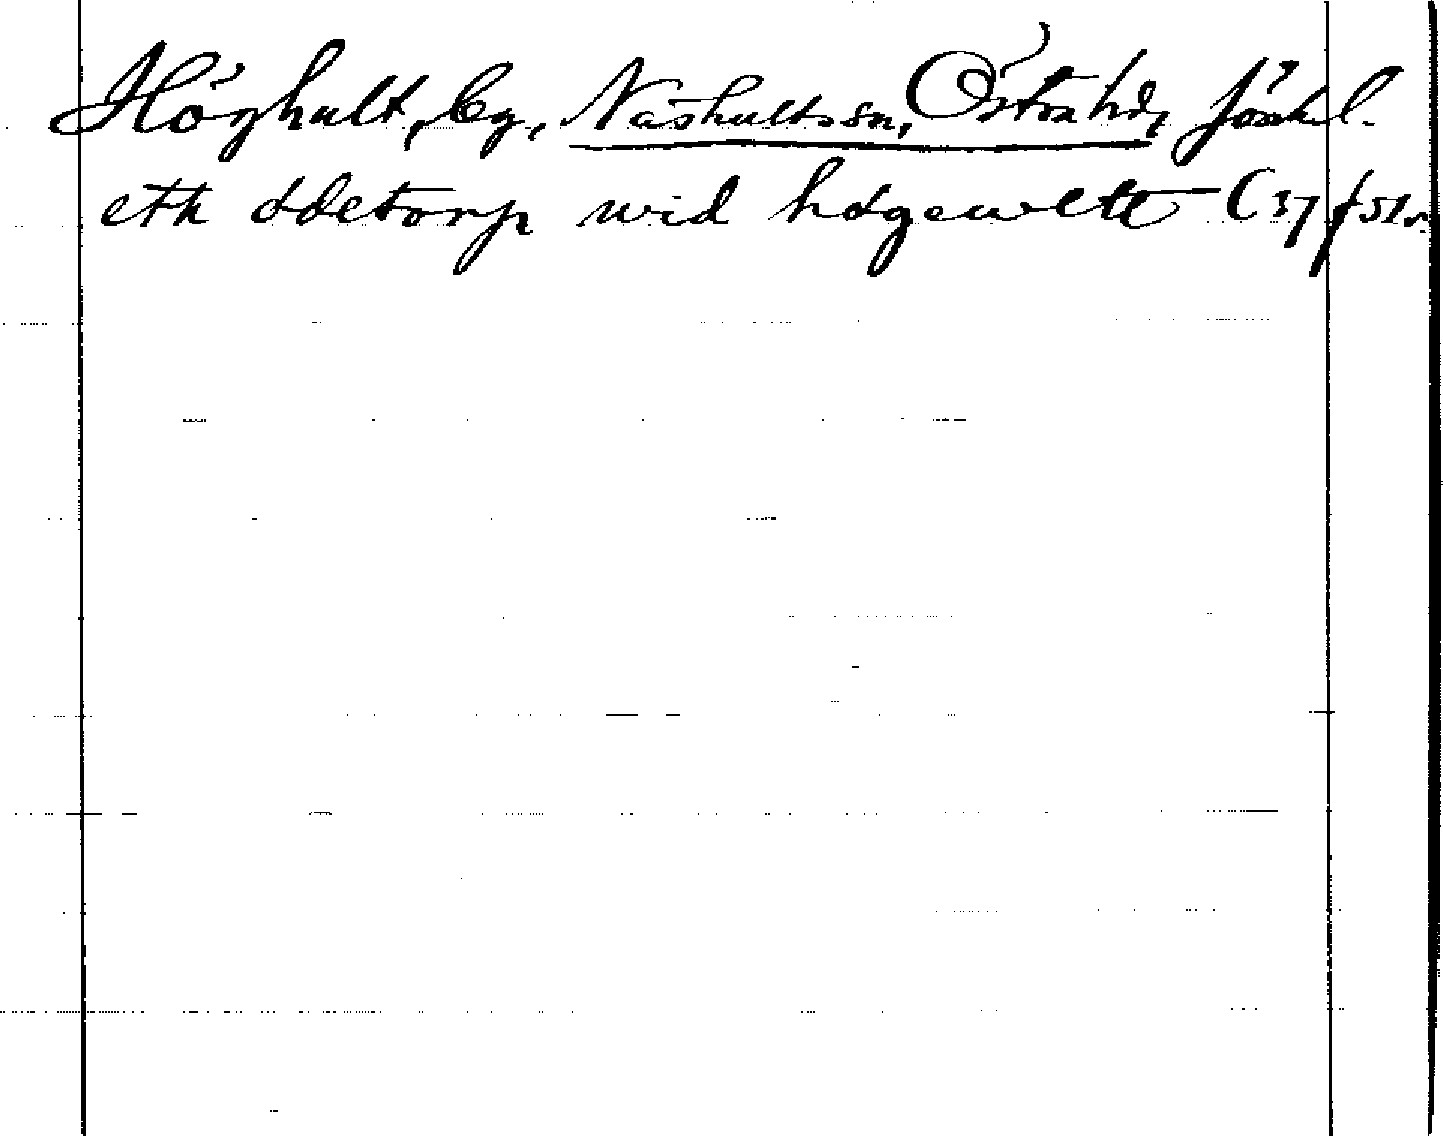 Höghult, by, Näshults sn, Östra hd, Jönk l.
eth ödetorp wid högewett C 37 f 51 r.